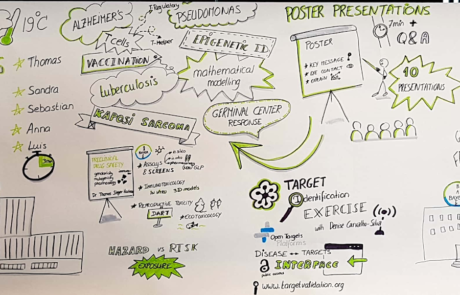 19°C
Thomas
Sandra
Sebastian
Anna
Luis
ALZHEIMER'S
Regulatory
Tcells
T-Helper
PSEUDOMONAS
VACCINATION
EPIGENETIC
tuberculosis
mathematical
modelling
KAPOSI SARCOMA
GERMINAL CENTER
RESPONSE
POSTER PRESENTATIONS
7min +
Q&A
POSTER
KEY MESSAGE
CONTACT
10
PRESENTATIONS
PRECLINICAL
DRUG SAFETY
Dr. Thomas
& SCREENS
REPRODUCTIVE TOXICITY
DART
ECOTOXICOLOGY
HAZARD vs RISK
EXPOSURE
TARGET
Identification
EXERCISE
with Denise Carvalho-Silva
Open Targets
Platform
DISEASE ↔ TARGETS
INTERFACE
www.targetvalidation.org